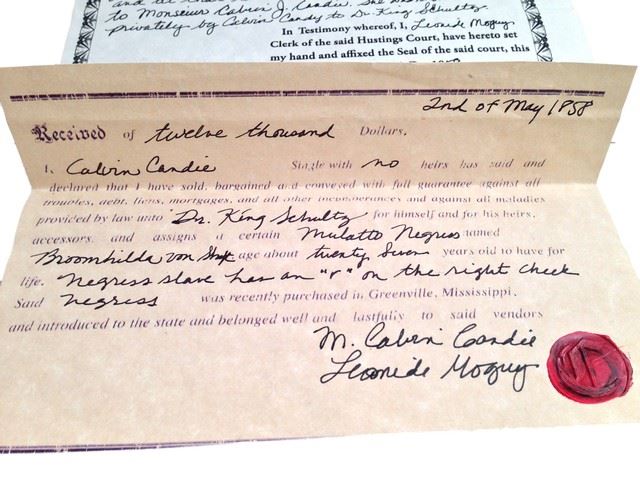 to Monsieur Calvin J. Candie. She was
privately by Calvin Candy to Dr. King Schultz
In Testimony whereof, I, Leonide Moguy
Clerk of the said Hustings Court, have hereto set
my hand and affixed the Seal of the said court, this
2nd of May 1858
Received of twelve thousand Dollars.
I, Calvin Candie Single with no heirs has said and
declared that I have sold, bargained and conveyed with full guarantee against all
troubles, debt, liens, mortgages, and all other incumberances and against all maladies
provided by law unto Dr. King Schultz for himself and for his heirs,
accessors, and assigns a certain Mulatto Negress named
Broomhilda von age about twenty Seven years old to have for
life. Negress slave has an "r" on the right cheek
Said negress was recently purchased in Greenville, Mississippi,
and introduced to the state and belonged well and lastfully to said vendors
M. Calvin Candie
Leonide Moguy